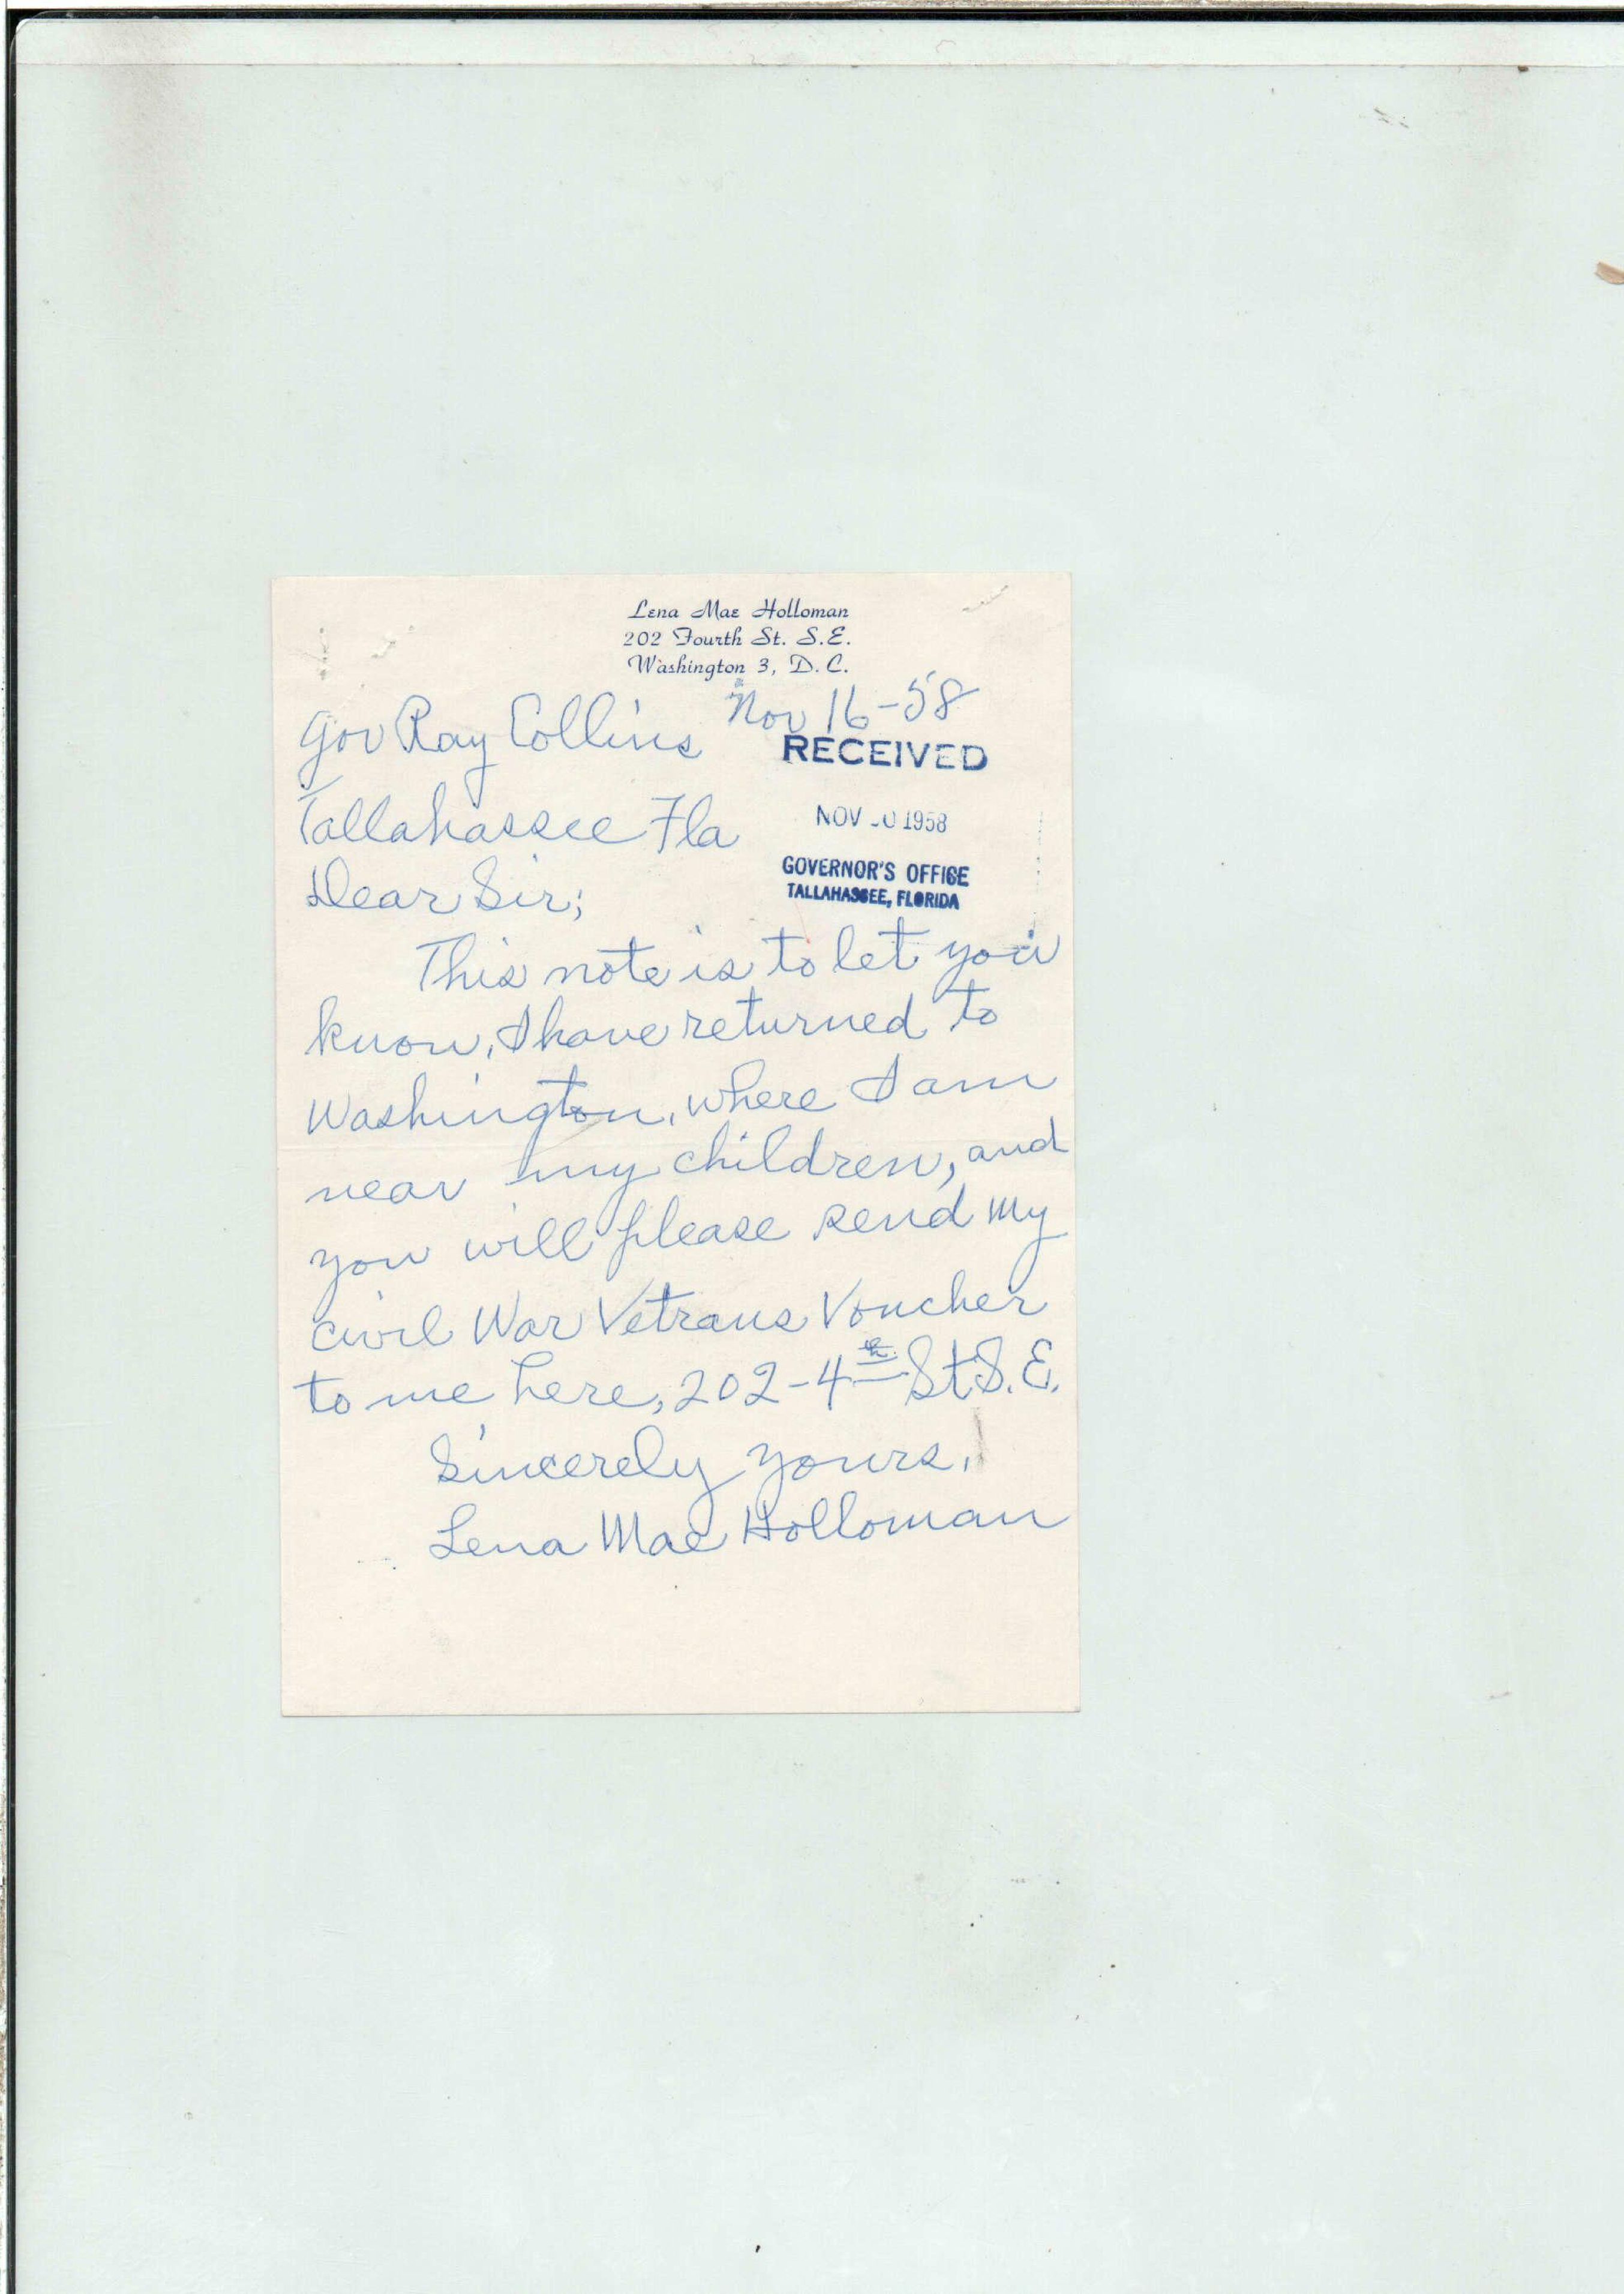 Lena Mae Holloman
202 Fourth St. S.E.
Washington 3, D.C.
Nov 16-58
Gov Ray Collins
RECEIVED
Tallahassee Fla
NOV 1958
GOVERNOR'S OFFICE
TALLAHASSEE, FLORIDA
Dear Sir;
This note is to let you
know, I have returned to
Washington, where I am
near my children, and
you will please send my
Civil War Vetrans Voucher
to me here, 202-4th St S.E.
Sincerely yours,
Lena Mae Holloman